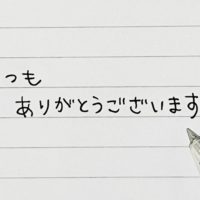 つも
ありがとうございます